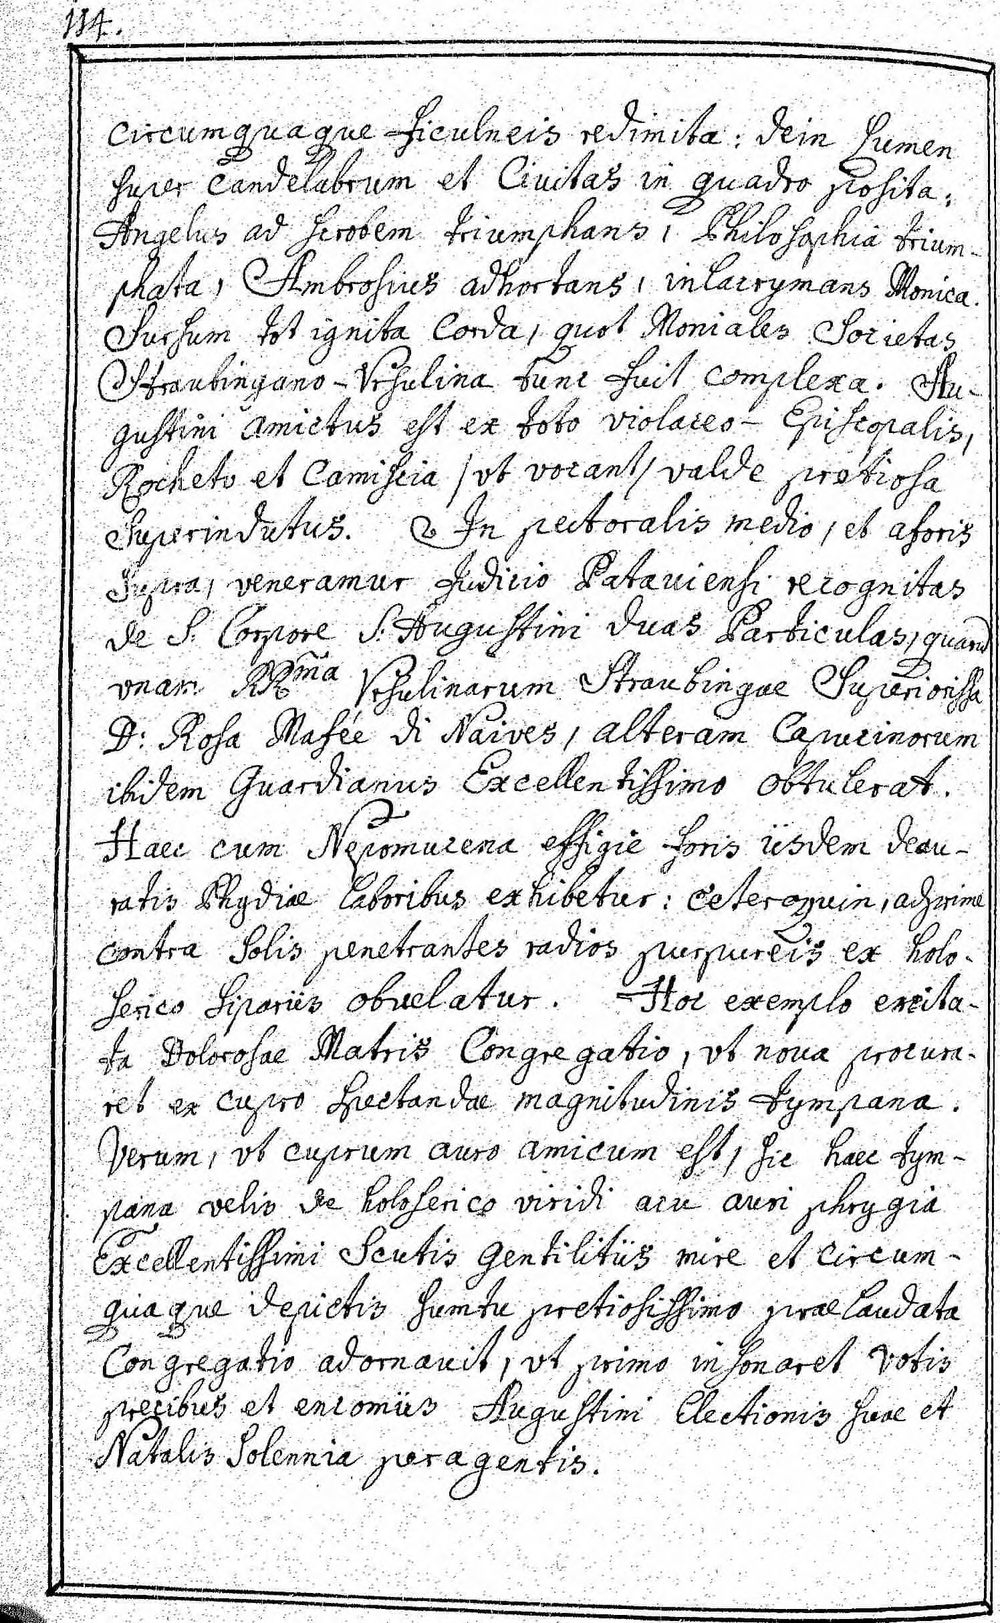 114.
circumquaque ficulneis redimita: dein lumen
super candelabrum et Civitas in quadro posita,
Angelus ad scrobem triumphans, Philosophia trium-
phata, Ambrosius adhortans, inlacrymans Monica.
Sursum tot ignita Corda, quot Moniales Societas
Straubingano-Vrsulina tunc fuit complexa. Au-
gustini amictus est ex toto violaceo- Episcopalis,
Rocheto et Camiscia /vt vocant/ valde pretiosa
superindutus. In pectoralis medio, et aforis
supra, veneramur Judicio Patauiensi recognitas
de S. Corpore S. Augustini duas Particulas, quarū
vnam RR.ma Vrsulinarum Straubingae Superiorissa
D: Rosa Masée di Naives, alteram Capucinorum
ibidem Guardianus Excellentissimo obtulerat.
Haec cum Nepomucena effigie foris iisdem deau-
ratis Phydiae laboribus exhibetur: ceteroquin, adprime
contra Solis penetrantes radios purpureis ex holo-
serico sipariis obuelatur. Hoc exemplo excita-
ta Dolorosae Matris Congregatio, vt noua procura-
ret ex cupro spectandae magnitudinis tympana.
Verum, vt cuprum auro amicum est, sic haec tym-
pana velis de holoserico viridi acu auri phrygia
Excellentissimi Scutis gentilitiis mire et circum-
quaque depictis sumtu pretiosissimo praelaudata
Congregatio adornauit, vt primo insonaret votis
precibus et encomiis Augustini Electionis suae et
Natalis Solennia peragentis.